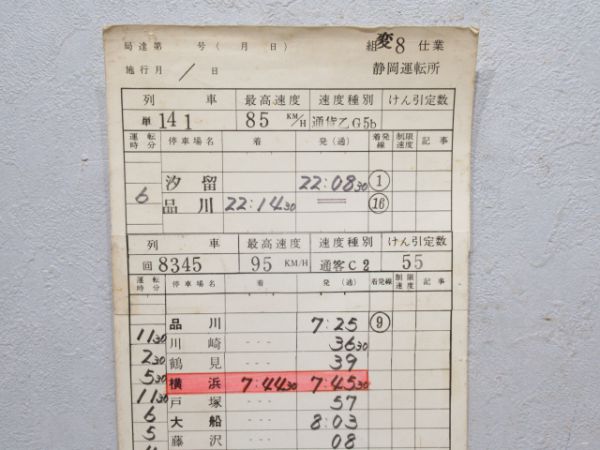 局達第 号(月 日) 組変8仕業
施行月 / 日 静岡運転所
列車 最高速度 速度種別 けん引定数
単141 85KM/H 通貨乙G5b
運転時分 停車場名 着 発(通) 着発線 制限速度 記事
汐留 22:08 30 ①
6 品川 22:14 30 ⑯
列車 最高速度 速度種別 けん引定数
回8345 95KM/H 通客C2 55
運転時分 停車場名 着 発(通) 着発線 制限速度 記事
品川 7:25 ⑨
11 30 川崎 ・・・ 36 30
2 30 鶴見 ・・・ 39
5 30 横浜 7:44 30 7:45 30
11 30 戸塚 ・・・ 57
6 大船 ・・・ 8:03
5 藤沢 ・・・ 08